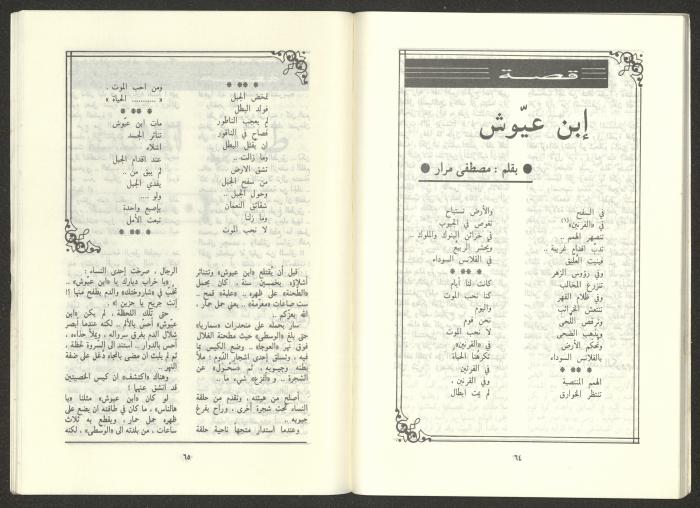 قصة
إبن عيّوش
● بقلم : مصطفى مرار ●
في السفح
في «القرنين» (١)
تنصهر الهمم ..
تدب أقدام غريبة ..
فينبت العليق
وفي رؤوس الزهر
تنزرع المخالب
وفي ظلام القهر
تنتعش الخرائب
ويرقص اللحي
ويذهب الضحى
وتحكم الأرض
بالقلانس السوداء
● * ● * ●
الهمم المنتصبة
تنتظر الخوارق
والأرض تستباح
تغوص في الجيوب
في خزائن البنوك والملوك ..
ويحشر الربيع
في القلانس السوداء
● * ● * ●
كانت لنا أيام
كنا نحب الموت
واليوم
نحن قوم
لا نحب الموت
في «القرنين»
تكرهنا الحياة
في القرنين
وفي القرنين ،
لم يبت أبطال
٦٤
● * ● * ●
تمخض الجبل
فولد البطل
لم يعجب الناطور
فصاح في الناقور
ان يقتل البطل
وما زالت ..
تشق الارض
من سفح الجبل
وحول الجبل ..
شقائق النعمان
وما زلنا
لا نحب الموت
ومن احب الموت ،
« ........... الحياة »
● * ● * ●
مات ابن عيّوش
تناثر الجسد
اشلاء
عند اقدام الجبل
لم يبق من ..
يفدي الجبل
ولو .....
بإصبع واحدة
تبعث الأمل
● * ● * ●
قبل أن يقتلع «ابن عيوش» وتتناثر
أشلاؤه، بخمسين سنة .. كان يحمل
«الطحنة» على ظهره .. «علبة» قمح ..
ست صاعات «مغرمة» .. يعني حمل حمار،
الله يعزكم ..
سار بحمله على منحدرات «سماريا»
حتى بلغ «الوسطى» حيث مطحنة الغلال
فوق نهر «العوجا» .. وضع الكيس بما
فيه ، وتسلق إحدى أشجار التوت ؛ ملأ
بطنه وجيوبه ، ثم «تسحول» عن
الشجرة .. و «انزع» شيء ما ..
أصلح من هيئته ، وتقدم من حلقة
النساء تحت شجرة أخرى ، وراح يفرغ
جيوبه ..
وعندما استدار متجهاً ناحية حلقة
الرجال ، صرخت إحدى النساء :
حتى تلك اللحظة ، لم يكن «ابن
عيوش» أحس بالألم .. لكنه عندما أبصر
شلال الدم يغرق سرواله ، ويملأ حذاءه ،
أحس بالدوار .. أستند الى السروة لحظة ،
ثم لم يلبث ان مضى بالجاه دغل على ضفة
النهر ..
وهناك «اكتشف» ان كيس الخصيتين
قد انشق عنهما !
لو كان «ابن عيوش» مثلنا «يا
هالناس» ، ما كان في طاقته ان يضع على
ظهره حمل حمار ، ويقطع به ثلاث
ساعات ، من بلدته الى «الوسطى» ، لكنه
٦٥